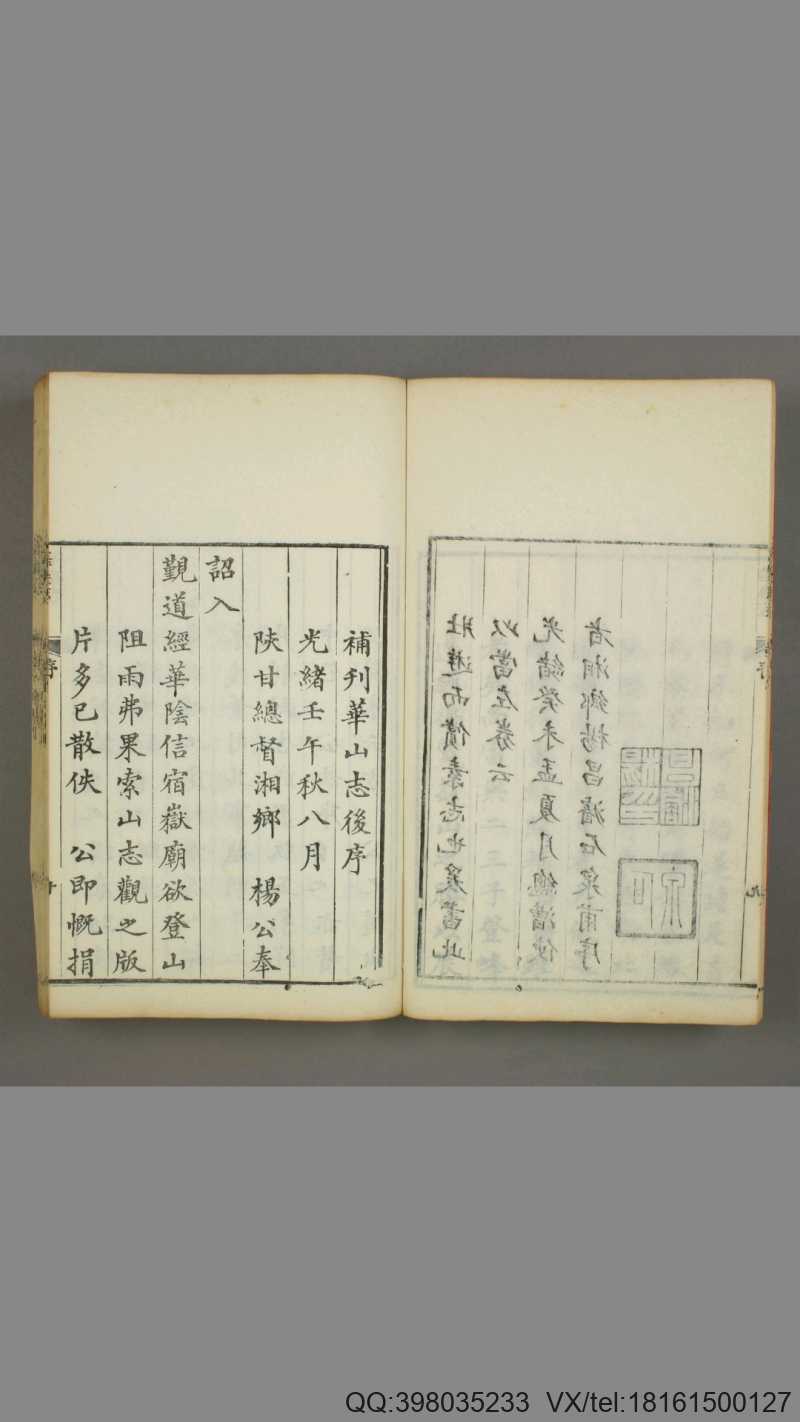 壯遊而償素志也爰書此
以當左券云
光緒癸未孟夏月總漕使
者湘鄉楊昌濬石泉甫序
序
九
補刊華山志後序
光緒壬午秋八月
陝甘總督湘鄉 楊公奉
詔入
覲道經華陰信宿嶽廟欲登山
阻雨弗果索山志觀之版
片多已散佚 公即慨捐
序
十
QQ:398035233 VX/tel:18161500127